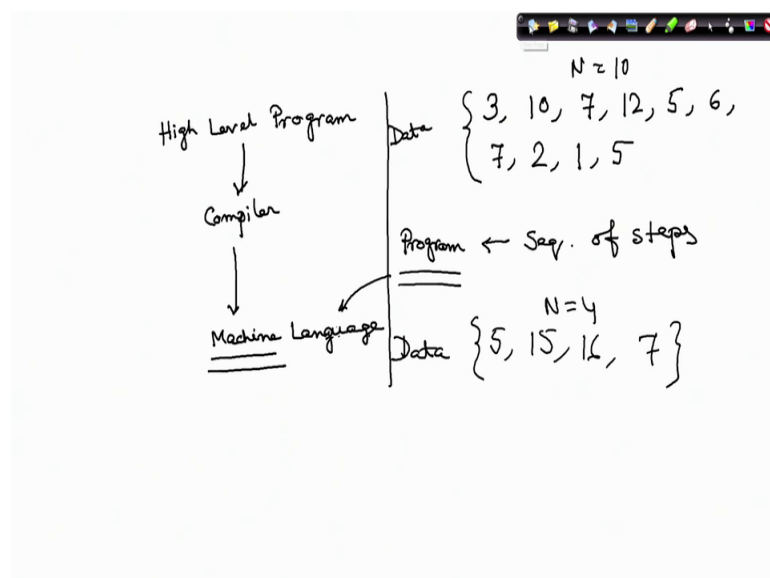 High Level Program
Compiler
Machine Language
N = 10
Data { 3, 10, 7, 12, 5, 6,
7, 2, 1, 5
Program ← Seq. of steps
N=4
Data {5, 15, 16, 7}